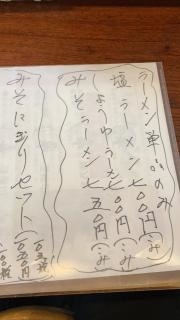 ラーメン単品のみ
塩ラーメン七〇〇円(こみ)
しょうゆラーメン七〇〇円(こみ)
みそラーメン七五〇円(こみ)
みそにぎりセット